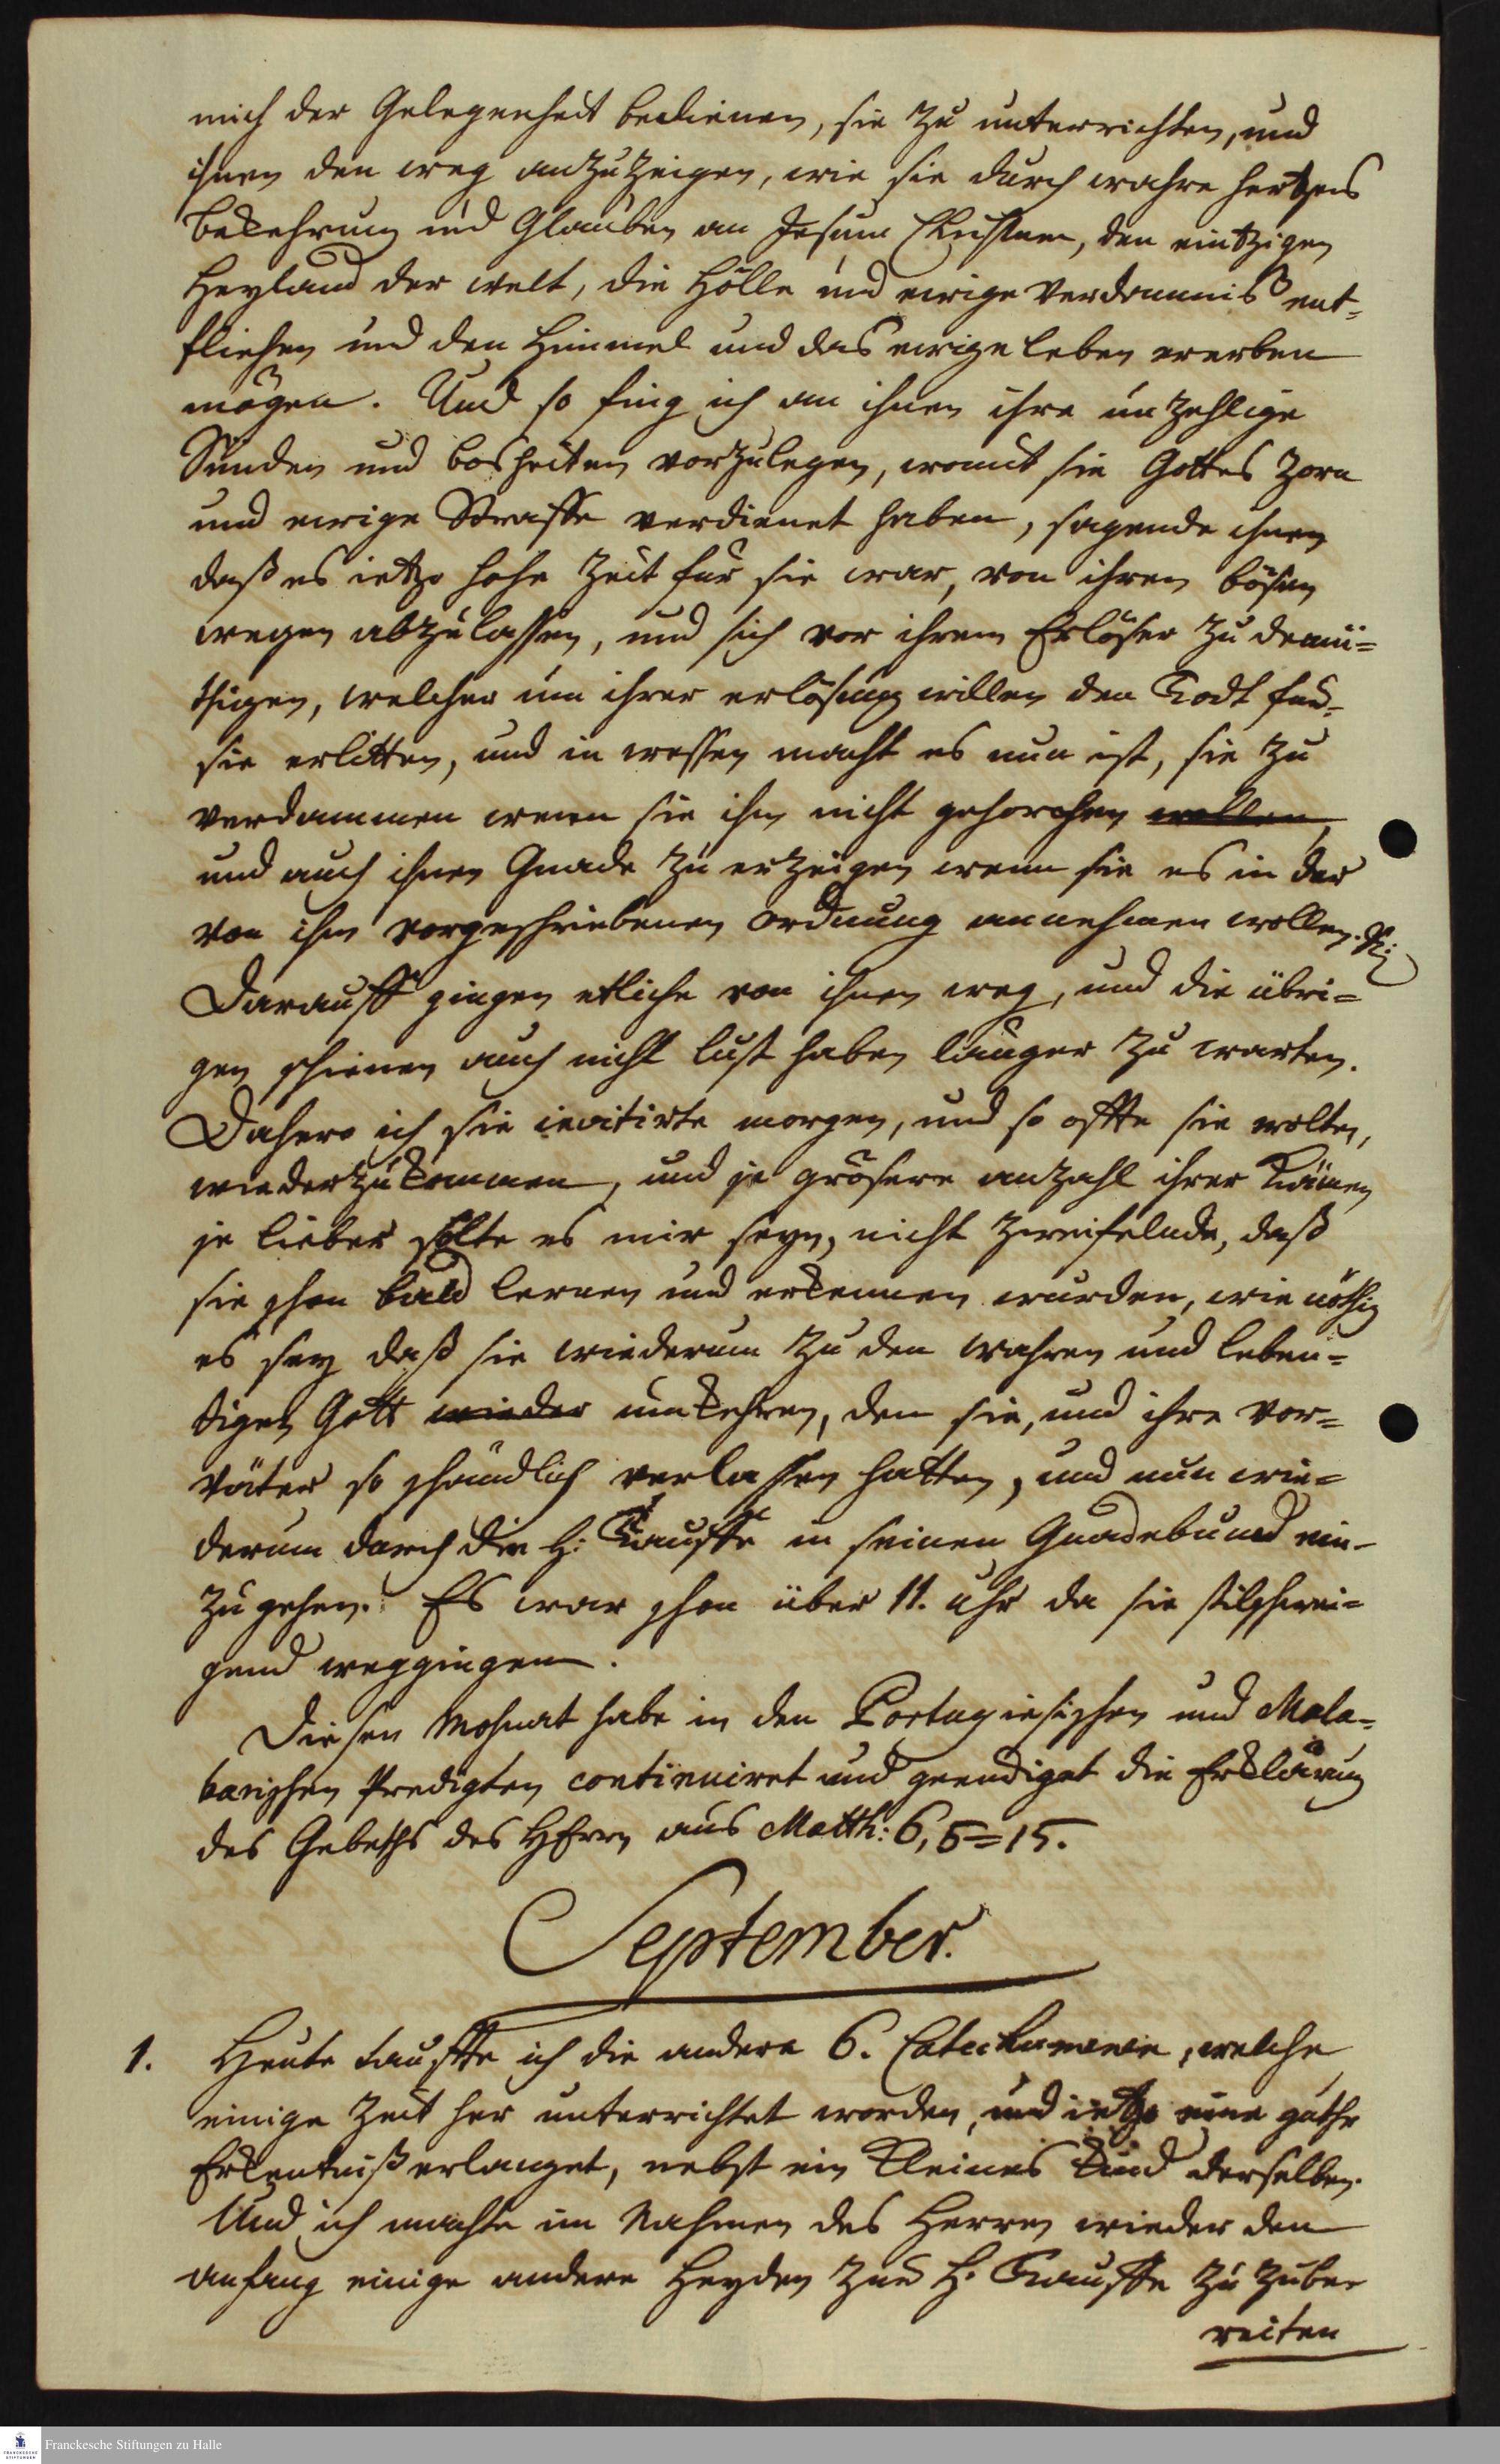 mich der Gelegenheit bedienen, sie zu unterrichten, und
ihnen den weg anzuzeigen, wie sie durch wahre hertzens
bekehrung und Glauben an Jesum Christum, den eintzigen
Heyland der welt, die Hölle und ewige Verdamnis ent=
fliehen und den Himmel und das ewige leben ererben
mögen. Und so fing ich an ihnen ihre unzehlige
Sünden und bosheiten vorzulegen, womit sie Gottes Zorn
und ewige Straffe verdienet haben, sagende ihnen
daß es ietzo hohe Zeit für sie war, von ihren bösen
wegen abzulassen, und sich vor ihrem Erlöser zu demü=
thigen, welcher um ihrer erlösung willen den Todt für
sie erlitten, und in wessen macht es nun ist, sie zu
verdammen wenn sie ihm nicht gehorchen wollen,
und auch ihnen Gnade zu erzeigen wenn sie es in der
von ihm vorgeschriebenen ordnung annehmen wollen.
Darauff gingen etliche von ihnen weg, und die übri=
gen schienen auch nicht lust haben länger zu warten.
Dahero ich sie invitirte morgen, und so offte sie wolten,
wiederzukommen, und je grösere anzahl ihrer kämen,
je lieber solte es mir seyn, nicht zweifelnde, daß
sie schon bald lernen und erkennen wurden, wie nöthig
es sey daß sie wiederum zu den wahren und leben=
digen Gott wieder umkehren, den sie, und ihre Vor=
väter so schändlich verlassen hatten, und nun wie=
derum durch die H: Tauffe in seinen Gnadebund ein=
zugehen. Es war schon über 11. uhr da sie stilschwei=
gend weggingen.
Diesen Mohnat habe in den Portugiesischen und Mala=
barischen Predigten continuiret und geendiget die Erklärung
des Gebeths des HErrn aus Matth: 6, 5=15.
September.
1. Heute tauffte ich die andere 6. Catechumenen, welche
einige Zeit her unterrichtet worden, und ietzo eine guthe
Erkentniß erlanget, nebst ein kleines Kind derselben.
Und ich machte im Nahmen des Herren wieder den
anfang einige andere Heyden zur H. Tauffe zu zube
reiten
Franckesche Stiftungen zu Halle